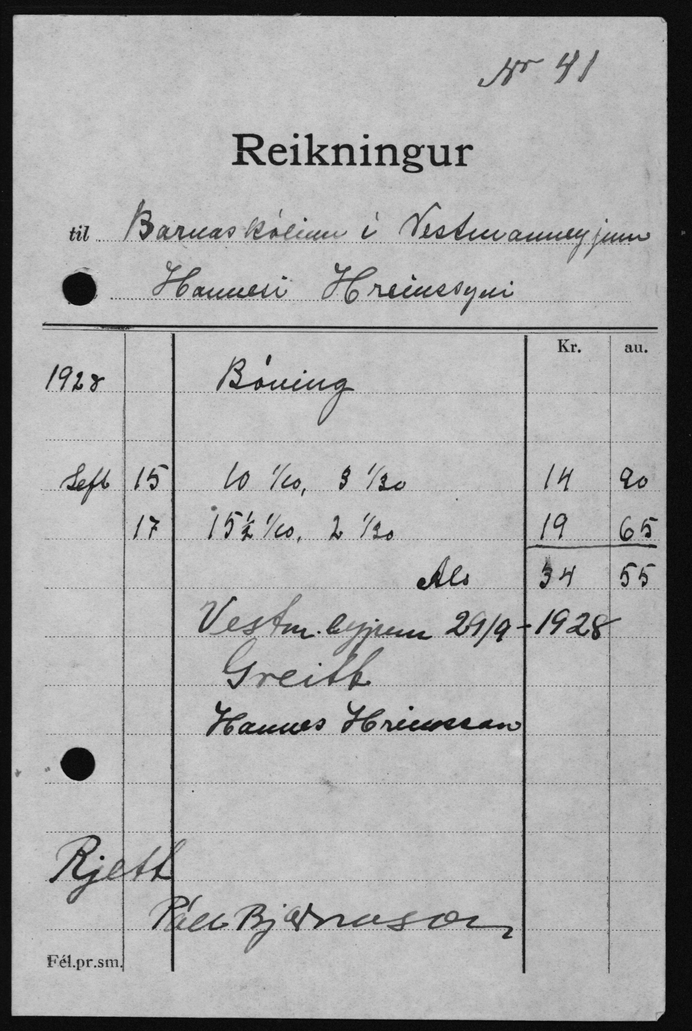 Nr 41
Reikningur
til Barnaskólinn í Vestmanneyjum
Hannesi Hreinssyni
Kr. au.
1928 Bóning
Sept 15 10 1/10, 3 1/30 14 90
17 15½ 1/10, 2 1/30 19 65
Als 34 55
Vestm.eyjum 29/9-1928
Greitt
Hannes Hreinsson
Rjett
Páll Bjarnason
Fél.pr.sm.